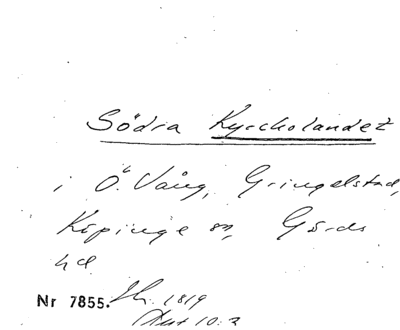 Södra Kyrcholandet
i Ö. Vång, Gringelstad,
Köpinge sn, Gärds
hd
Nr 7855. Sk. 1819
Akt 10:2